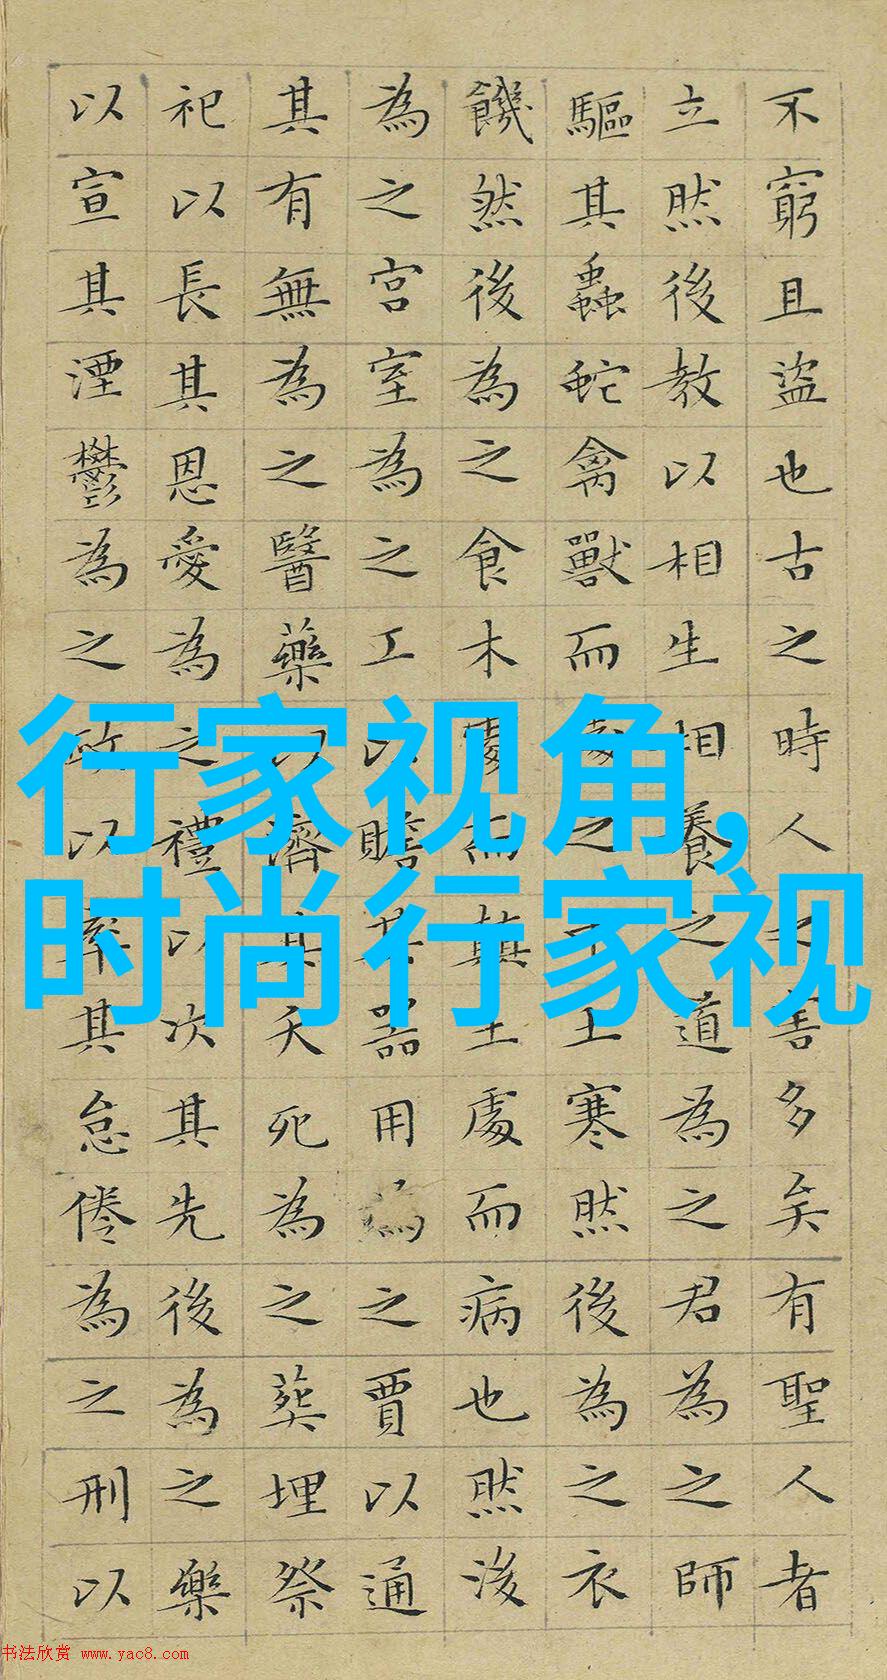 不窮且盜也古之時人之害多矣有聖人者
立然後教以相生相養之道為之君為之師
驅其蟲蛇禽獸而處之中土寒然後為之衣
饑然後為之食木處而土處而病也然後
為之宮室為之工以贍其器用為之賈以通
其有無為之醫藥以濟其夭死為之葬埋祭
祀以長其恩愛為之禮以次其先後為之樂
以宣其湮鬱為之政以率其怠倦為之刑以
行家视角,
时尚行家视
书法欣赏 www.yac8.com